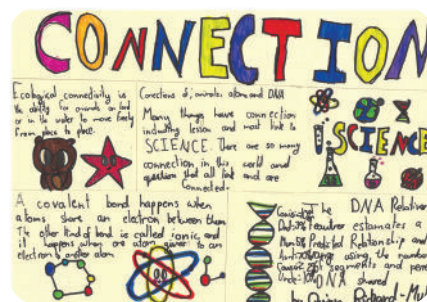 CONNECTION
Ecological connectivity is
the ability for animals on land
or in the water to move freely
from place to place.
Conections of, animals, atoms and DNA
Many things have connection
including lesson and most link to
SCIENCE. There are so many
connection in this world and
question that all link and
Connected.
SCIENCE
A covalent bond happens when
atoms share an electron between them
The other kind of bond is called ionic, and
it happens when one atom gives to an
electron to another atom
The DNA Relative
feature estamates a
Predicted Relationship and
using, the number
segments and
DNA shared
by Quinn